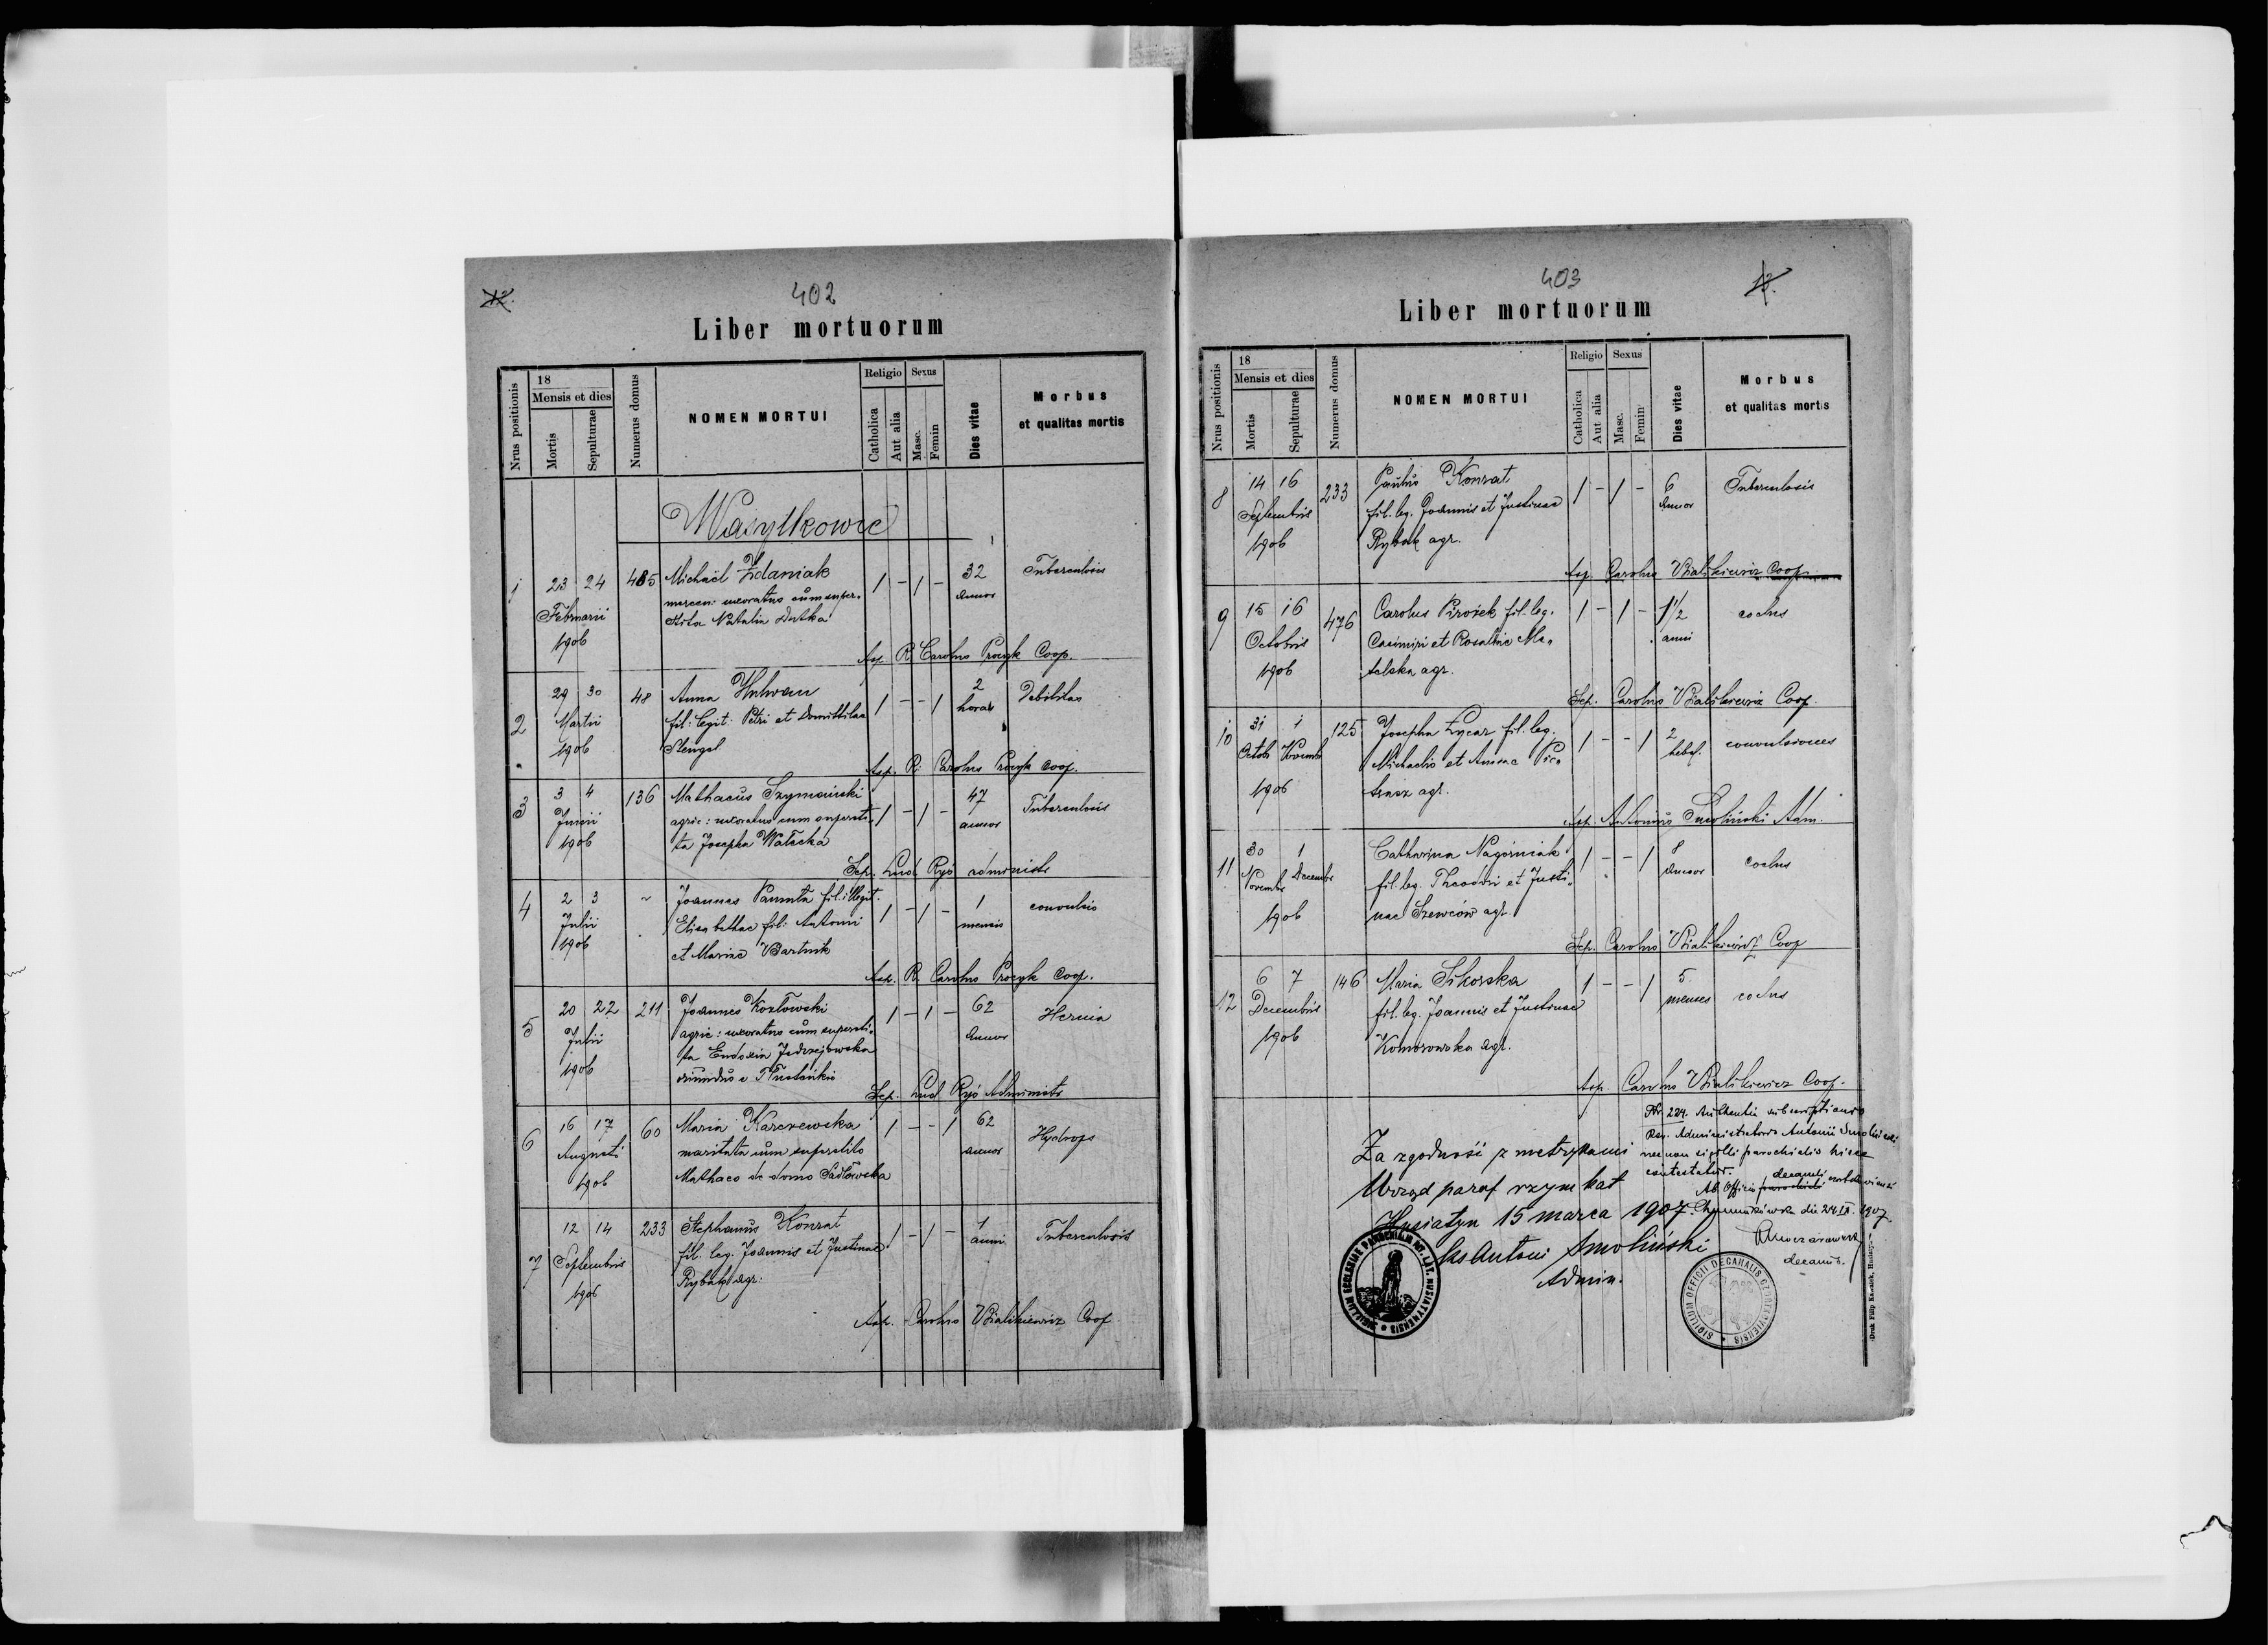 402
12.
Liber mortuorum
Nrus positionis
18
Mensis et dies
Mortis
Sepulturae
Numerus domus
NOMEN MORTUI
Religio
Catholica
Aut alia
Sexus
Masc.
Femin
Dies vitae
Morbus
et qualitas mortis
Wasylkowce
1 23 24 485 Michaël Zdaniak 1 - 1 - 32 Tuberculosis
Februarii mercen: uxoratus cum super- annor
1906 stita Natalia Dutka
Asp. R. Carolus Procyk Coop.
2 29 30 48 Anna 1 - - 1 2 Debilitas
Martii fil: legit: Petri et Domittilae horas
1906 Stengel
Asp. R. Carolus Procyk Coop.
3 3 4 136 Mathaeus Szymański 1 - 1 - 47 Tuberculosis
Junii agric: uxoratus cum supersti- annor
1906 ta Josepha Wałecka
Sep. Lud. Ryś administr
4 2 3 ~ Joannes fil: illegit. 1 - 1 - 1 convulsio
Julii Elisabethae fil: Antonii mensis
1906 et Mariae Bartnik
Asp. R. Carolus Procyk Coop.
5 20 22 211 Joannes Kozłowski 1 - 1 - 62 Hernia
Julii agric: uxoratus cum supersti- annor
1906 ta Eudoxia Jedrzejowska
oriundus e
Sep. Lud Ryś Administr
6 16 17 60 Maria Karczewska 1 - - 1 62 Hydrops
Augusti maritata cum superstito annor
1906 Mathaeo de domo Sadłowska
7 12 14 233 Stephanus Konrat 1 - 1 - 1 Tuberculosis
Septembris fil. leg. Joannis et Justinae anni
1906 Rybak agr.
Asp. Carolus Bialikiewicz Coop
403
13.
Liber mortuorum
Nrus positionis
18
Mensis et dies
Mortis
Sepulturae
Numerus domus
NOMEN MORTUI
Religio
Catholica
Aut alia
Sexus
Masc.
Femin
Dies vitae
Morbus
et qualitas mortis
8 14 16 233 Paulus Konrat 1 - 1 - 6 Tuberculosis
Septembris fil. leg. Joannis et Justinae annor
1906 Rybak agr.
Asp. Carolus Bialikiewicz Coop.
9 15 16 476 Carolus Pirożek fil. leg. 1 - 1 - 1 1/2 coclus
Octobris Casimiri et Rosaliae Ma- anni
1906 talska agr.
Sep. Carolus Bialikiewicz Coop.
10 31 1 125 Josepha Łycar fil. leg. 1 - - 1 2 convulsiones
Octob Novemb Michaelis et Annae Pie- hebd.
1906 agr.
Asp. Antonius Smoliński Adm.
11 30 1 Catharina Nagórniak 1 - - 1 8 coclus
Novembr Decembr fil. leg. Theodori et Justi- annor
1906 nae Szewców agr.
Sep. Carolus Bialikiewicz Coop
12 6 7 146 Maria Sikorska 1 - - 1 5 coclus
Decembris fil. leg. Joannis et Justinae menses
1906 Komorowska agr.
Asp. Carolus Bialikiewicz Coop.
Za zgodność z metrykami
Urząd paraf rzym kat
Husiatyn 15 marca 1907.
ks Antoni Smoliński
Admin.
Nr. 224. Authentia subscriptionis
Rev. Administratoris Antonii Smoliński
necnon sigilli parochialis hisce
contestatur.
Ab Officio parochiali decanali
die 24 1907
decanus.
SIGILLUM ECCLESIAE PAROCHIALIS RIT. LAT. HUSIATYNENSIS
SIGILLUM OFFICII DECANALIS
Druk Filip Husiatyn